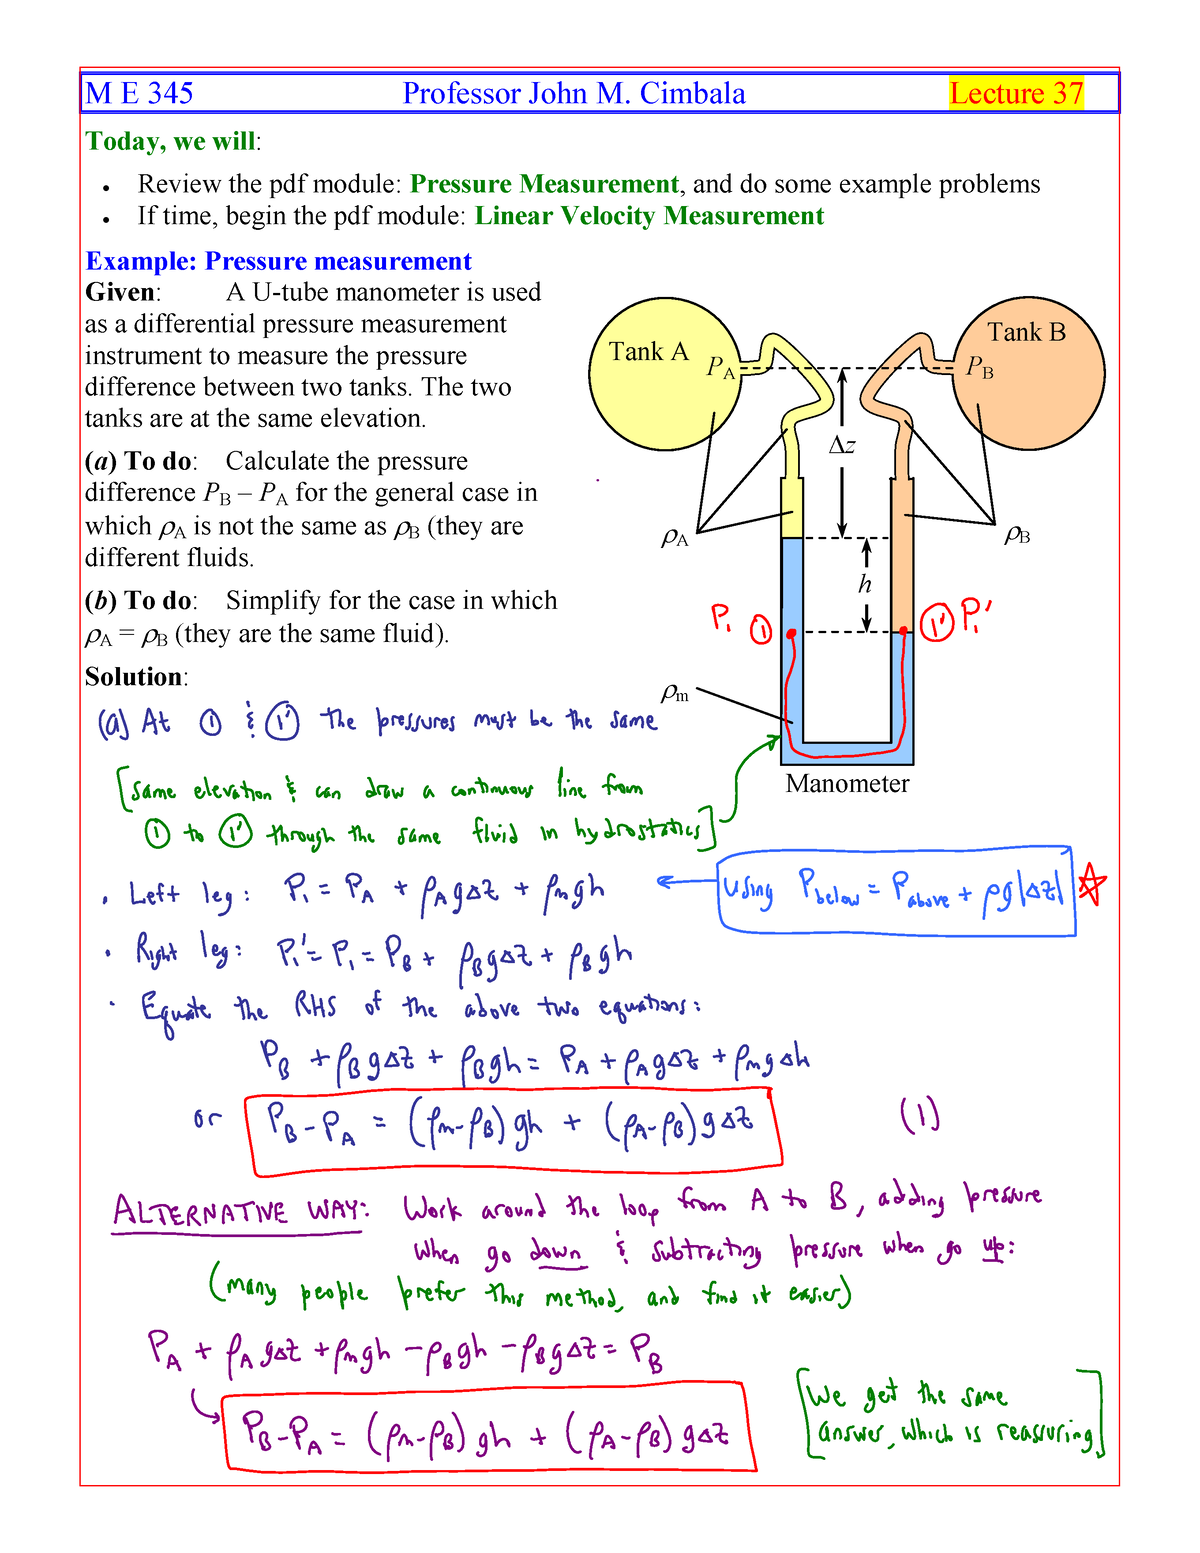 M E 345 Professor John M. Cimbala Lecture 37
Today, we will:
• Review the pdf module: Pressure Measurement, and do some example problems
• If time, begin the pdf module: Linear Velocity Measurement
Example: Pressure measurement
Given: A U-tube manometer is used
as a differential pressure measurement
instrument to measure the pressure
difference between two tanks. The two
tanks are at the same elevation.
(a) To do: Calculate the pressure
difference P_B – P_A for the general case in
which ρ_A is not the same as ρ_B (they are
different fluids.
(b) To do: Simplify for the case in which
ρ_A = ρ_B (they are the same fluid).
Solution:
Tank A
P_A
Tank B
P_B
Δz
ρ_A
ρ_B
h
P₁ ①
①' P₁'
ρ_m
Manometer
(a) At ① & ①' the pressures must be the same
[same elevation & can draw a continuous line from
① to ①' through the same fluid in hydrostatics]
• Left leg: P₁ = P_A + ρ_A gΔz + ρ_m gh
using P_below = P_above + ρg|Δz|
• Right leg: P₁' = P₁ = P_B + ρ_B gΔz + ρ_B gh
• Equate the RHS of the above two equations:
P_B + ρ_B gΔz + ρ_B gh = P_A + ρ_A gΔz + ρ_m gΔh
or P_B - P_A = (ρ_m - ρ_B) gh + (ρ_A - ρ_B) gΔz (1)
ALTERNATIVE WAY: Work around the loop from A to B, adding pressure
when go down & subtracting pressure when go up:
(many people prefer this method, and find it easier)
P_A + ρ_A gΔz + ρ_m gh - ρ_B gh - ρ_B gΔz = P_B
P_B - P_A = (ρ_m - ρ_B) gh + (ρ_A - ρ_B) gΔz
[We get the same
answer, which is reassuring]